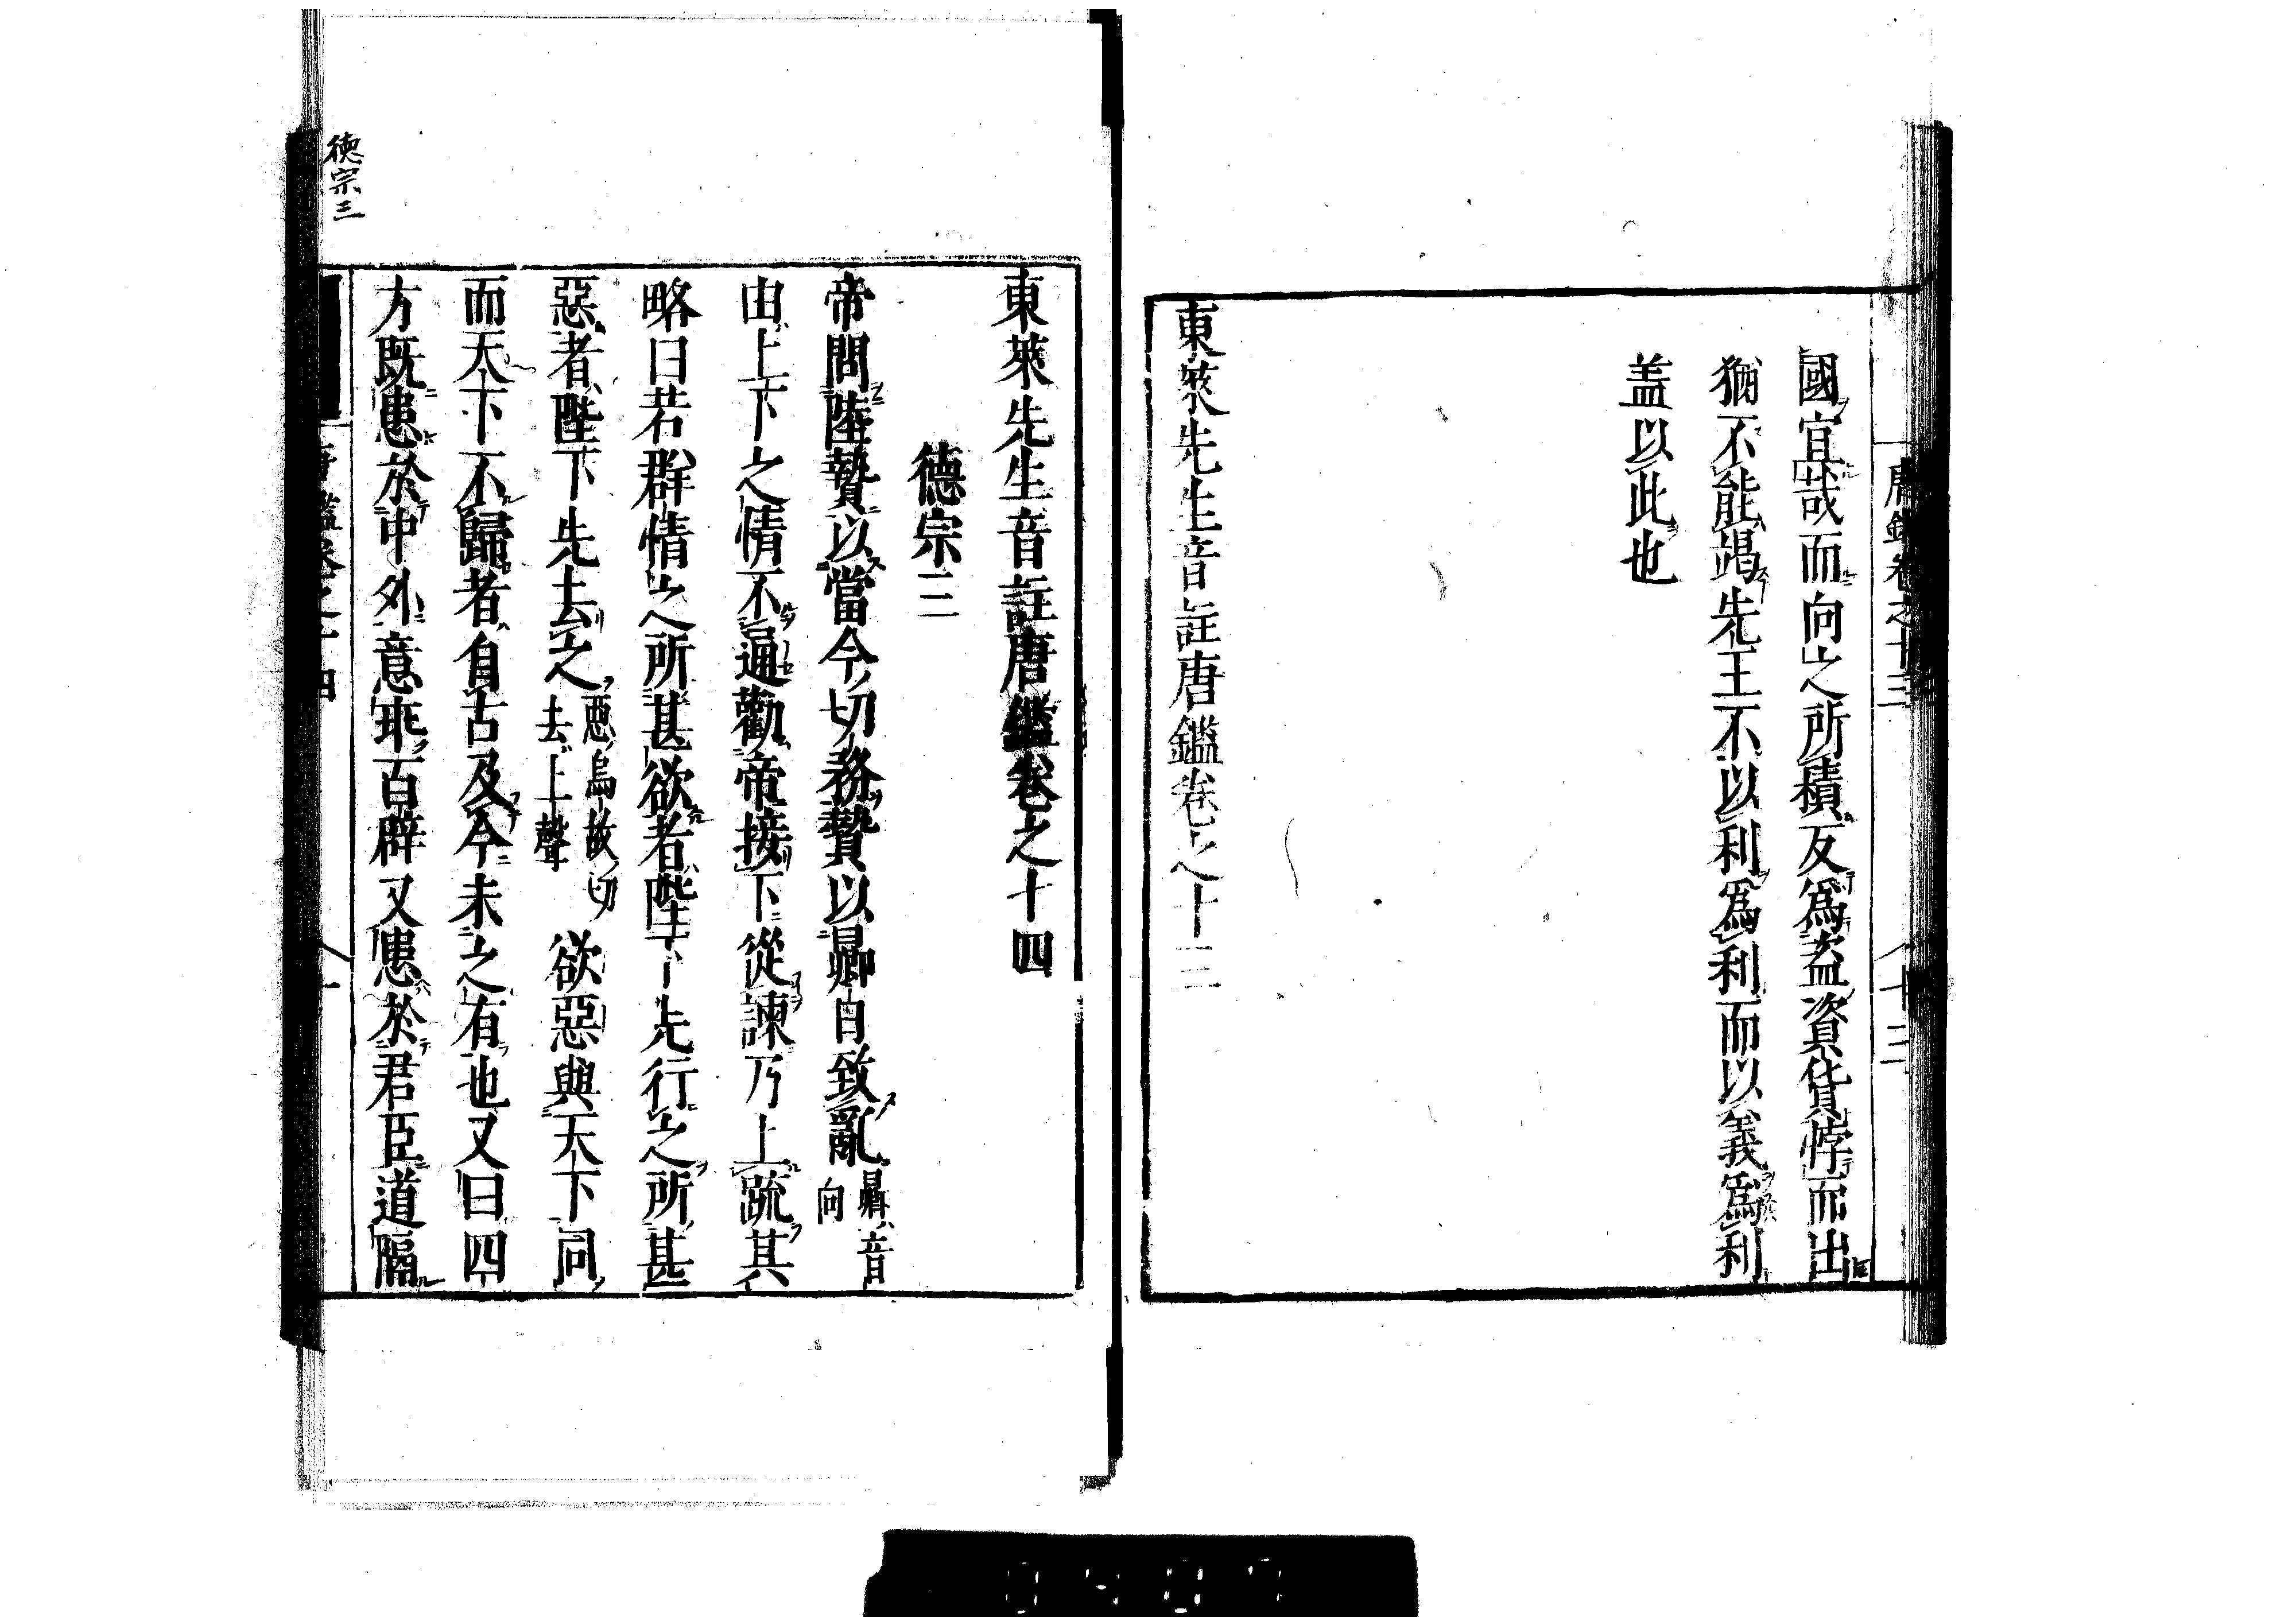 唐鑑卷之十三
國宜哉而向之所積反爲盗資貨悖而出
猶不能竭先王不以利爲利而以義爲利
盖以此也
東萊先生音註唐鑑卷之十三
東萊先生音註唐鑑卷之十四
德宗三
帝問陸贄以當今切務贄以曏日致亂曏音向
由上下之情不通勸帝接下從諫乃上疏其
略曰若群情之所甚欲者陛下先行之所甚
惡者陛下先去之惡烏故切去上聲欲惡與天下同
而天下不歸者自古及今未之有也又曰四
方既患於中外意乖百辟又患於君臣道隔
德宗三